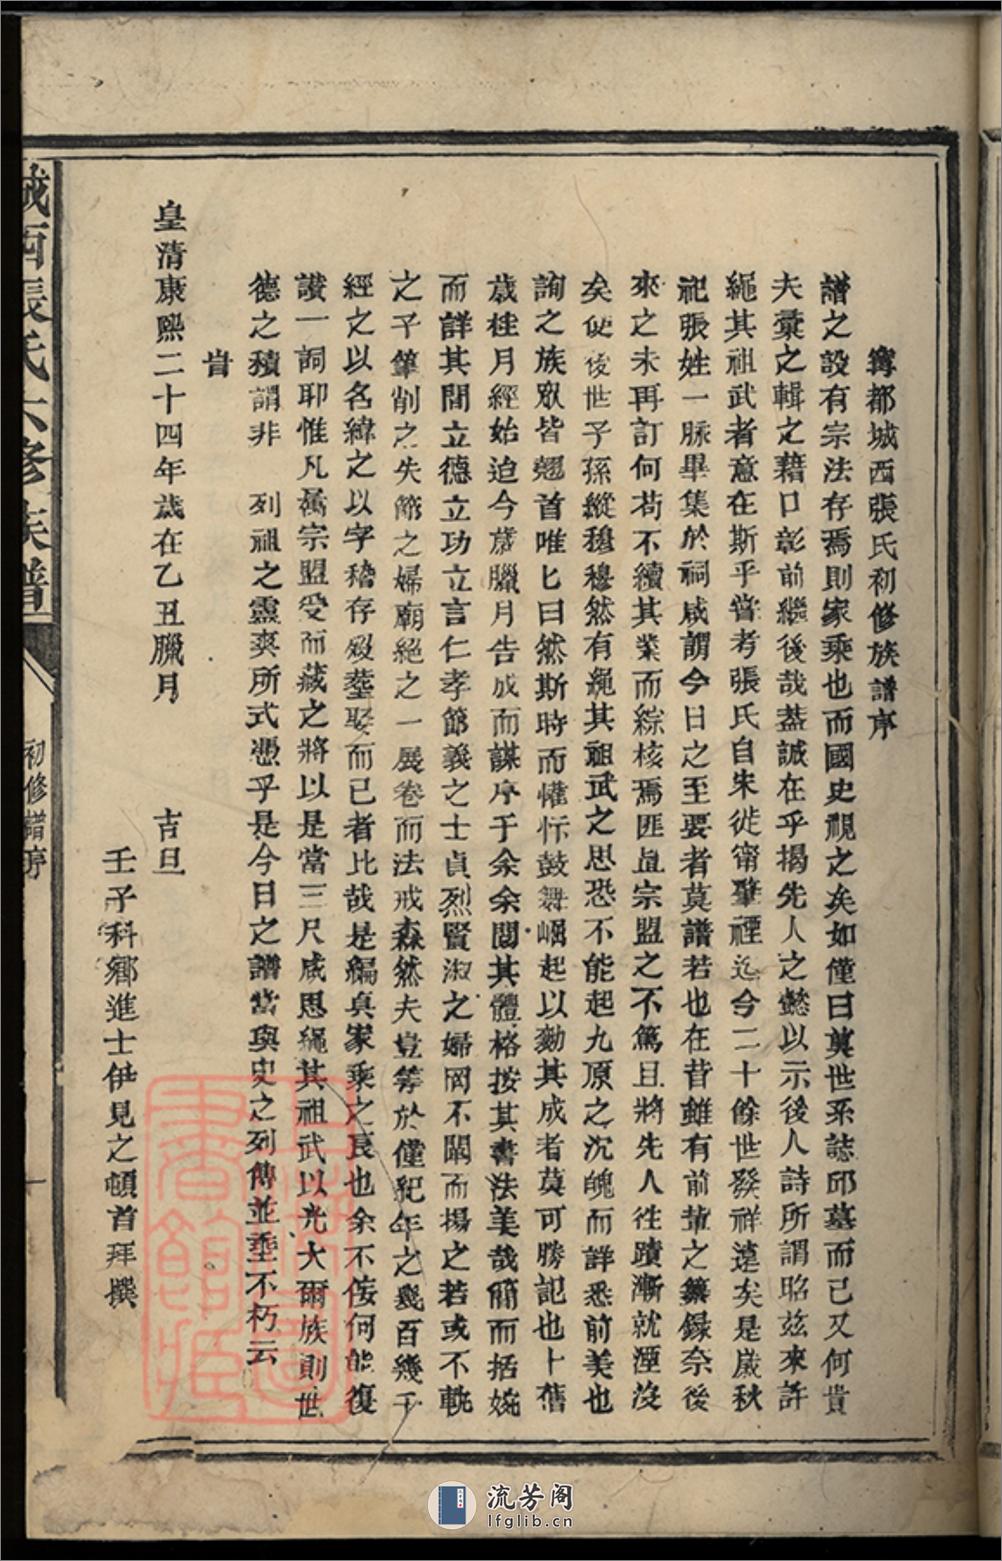 寗都城西張氏初修族譜序
譜之設有宗法存焉則家乘也而國史視之矣如僅曰奠世系誌邱墓而已又何貴
夫彚之輯之藉口彰前繼後哉葢誠在乎揭先人之懿以示後人詩所謂昭玆來許
繩其祖武者意在斯乎嘗考張氏自朱徙甯肇禋迄今二十餘世發祥遠矣是歲秋
祀張姓一脉畢集於祠咸謂今日之至要者莫譜若也在昔雖有前輩之纂録奈後
來之未再訂何苟不續其業而綜核焉匪直宗盟之不篤且將先人徃蹟漸就湮沒
矣使後世子孫縱穆穆然有繩其祖武之思恐不能起九原之沉魄而詳悉前美也
詢之族眾皆翹首唯匕曰然斯時而懽忻鼓舞崛起以勷其成者莫可勝記也卜舊
歲桂月經始迨今歲臘月告成而謀序于余余閱其體格按其書法美哉簡而括婉
而詳其間立德立功立言仁孝節義之士貞烈賢淑之婦罔不闡而揚之若或不軌
之子筆削之失節之婦廟絕之一展卷而法戒森然夫豈等於僅紀年之幾百幾千
經之以名緯之以字稽存歿塟娶而已者比哉是編真家乘之良也余不侫何能復
讃一詞耶惟凡屬宗盟受而藏之將以是當三尺咸思繩其祖武以光大爾族則世
德之積謂非 列祖之靈爽所式憑乎是今日之譜當與史之列傳並垂不朽云
旹
皇清康熙二十四年歲在乙丑臘月 吉旦
壬子科鄉進士伊見之頓首拜撰
城西張氏六修族譜
初修譜序
一
流芳阁
lfglib.cn